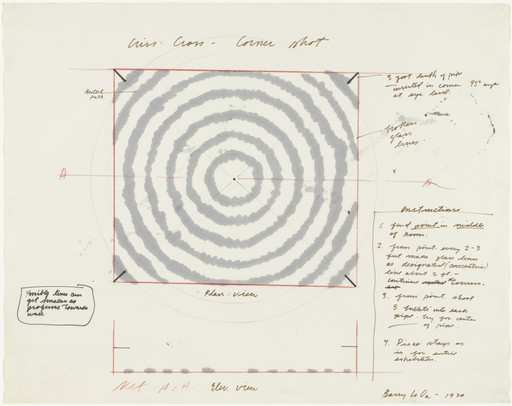 Criss-Cross - Corner Shot
Bullet
path
3 foot length of pipe
inserted in corner 45° angle
at eye level.
broken
glass
lines.
A
A
Instructions
1. find point in middle
of room.
2. from point every 2-3
feet make glass lines
as designated (concentric)
line about 2 ft -
continue to corners.
3. from point shoot
5 bullets into each
pipe. try for center
of pipe.
4. Piece stays as
is for entire
exhibition.
Possibly lines can
get smaller as
progresses towards
wall
Plan - view
A-A Elev. view
Barry Le Va - 1970